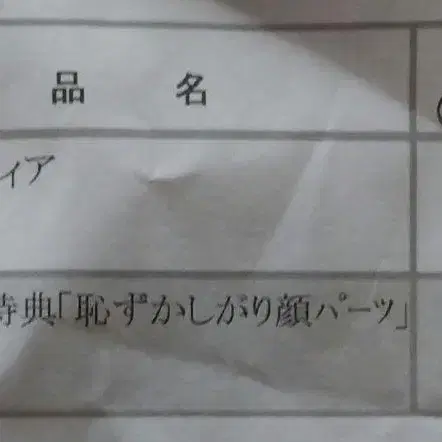 品 名
ィア
特典「恥ずかしがり顔パーツ」